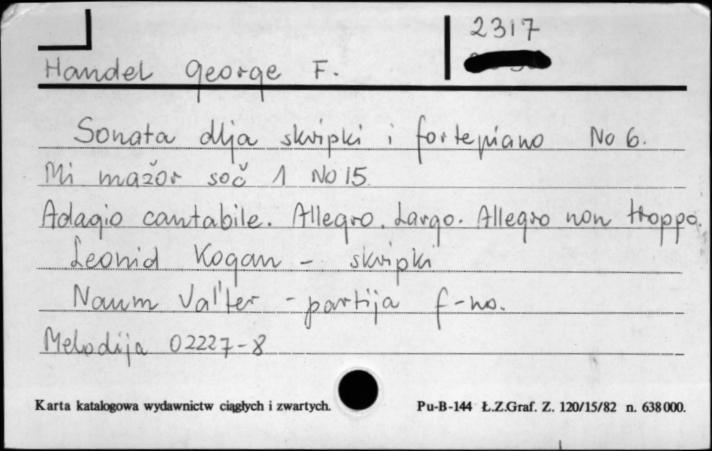 2317
Handel George F.
Sonata dlja skripki i fortepiano No 6.
Mi mažor soč 1 No 15.
Adagio cantabile. Allegro. Largo. Allegro non troppo.
Leonid Kogan - skripki
Naum Val'ter - partija f-no.
Melodija 02227-8
Karta katalogowa wydawnictw ciągłych i zwartych.
Pu-B-144 Ł.Z.Graf. Z. 120/15/82 n. 638 000.